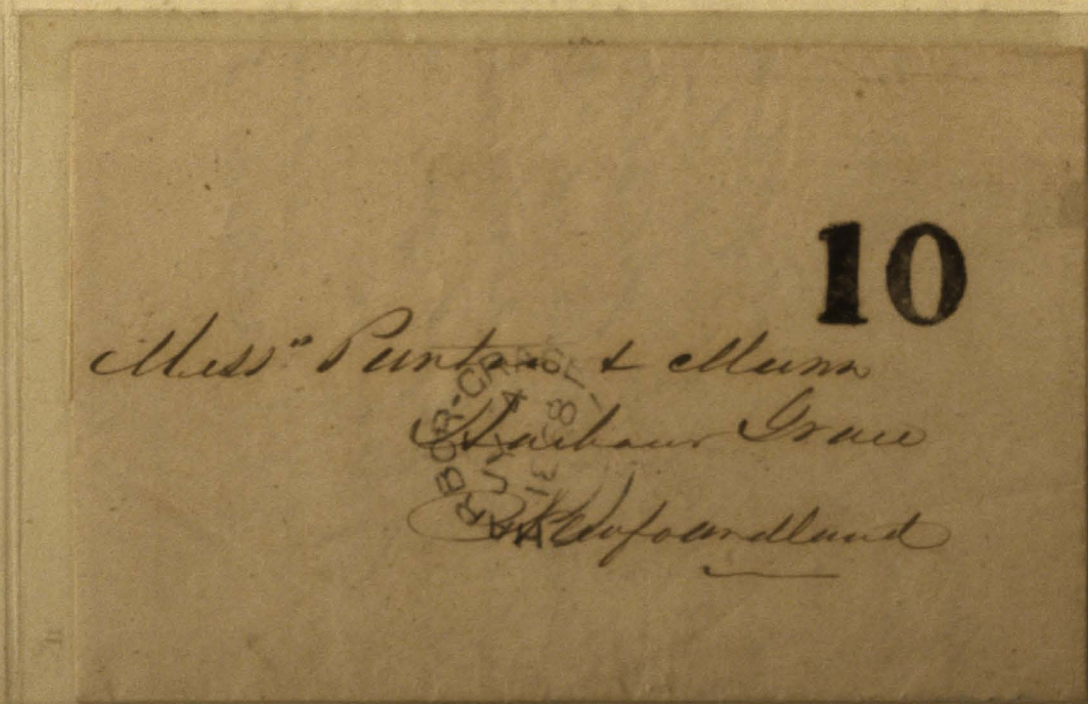 10
Messrs Punton & Munn
Harbour Grace
Newfoundland
HARBOR-GRACE